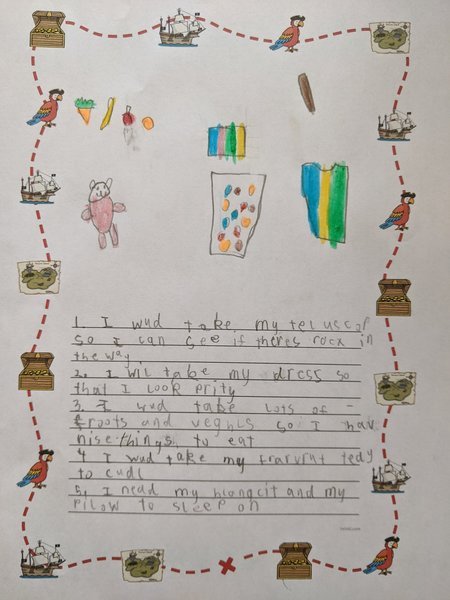 1. I wud take my teluscop
so I can see if theres rocx in
the way
2. I wil take my dress so
that I look prity
3. I wud take lots of
froots and veghls so I hav
nise things to eat
4 I wud take my fravrut tedy
to cudl
5. I nead my blangcit and my
pilow to sleep on